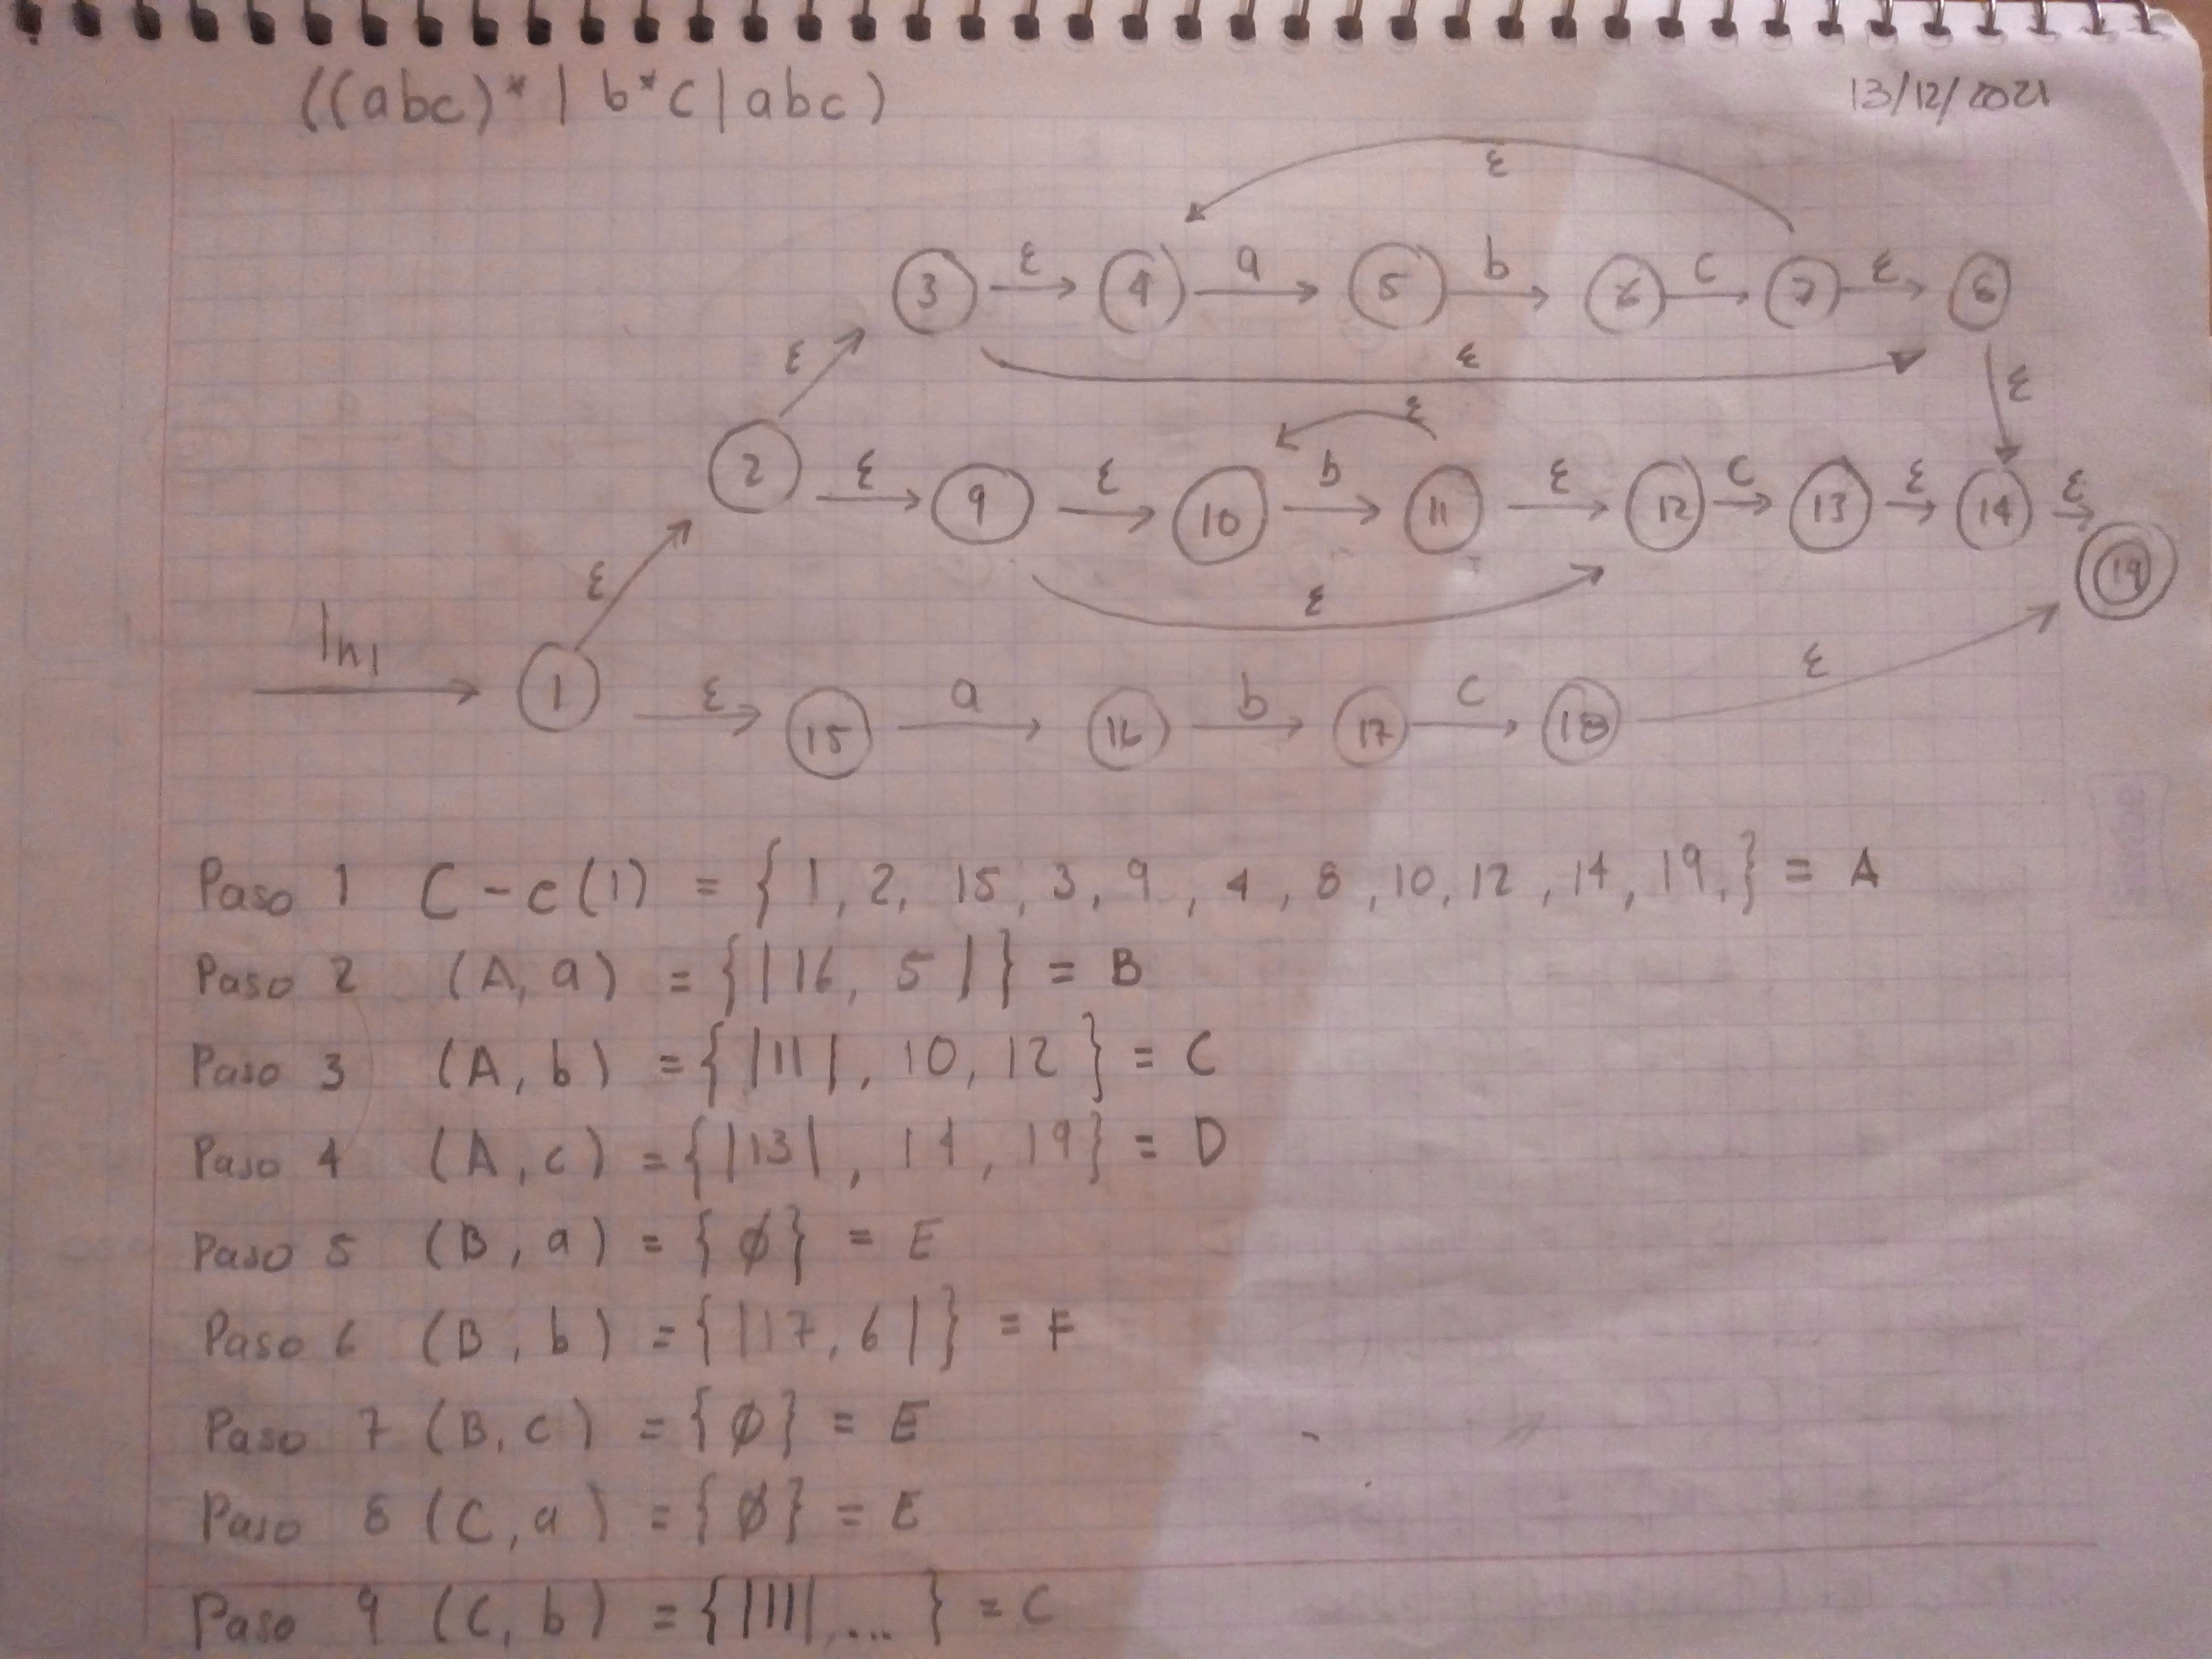 ((abc)* | b*c | abc)
13/12/2021
ε
3 ε 4 a 5 b 6 c 7 ε 8
ε ε ε
ε
2 ε 9 ε 10 b 11 ε 12 c 13 ε 14 ε
19
ε ε
In1
1 ε 15 a 16 b 17 c 18 ε
Paso 1 C-e(1) = {1, 2, 15, 3, 9, 4, 8, 10, 12, 14, 19,} = A
Paso 2 (A, a) = {|16, 5|} = B
Paso 3 (A, b) = {|11|, 10, 12} = C
Paso 4 (A, c) = {|13|, 14, 19} = D
Paso 5 (B, a) = {ϕ} = E
Paso 6 (B, b) = {|17, 6|} = F
Paso 7 (B, c) = {ϕ} = E
Paso 8 (C, a) = {ϕ} = E
Paso 9 (C, b) = {|11|, ...} = C